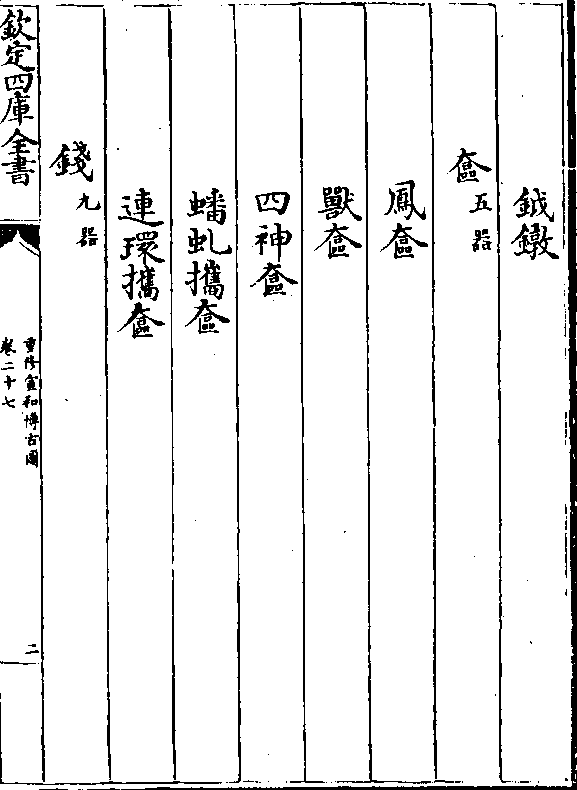 鉞鐓
奩五器
鳳奩
獸奩
四神奩
蟠虬攜奩
連環攜奩
錢九器
欽定四庫全書
重修宣和博古圖
卷二十七
二